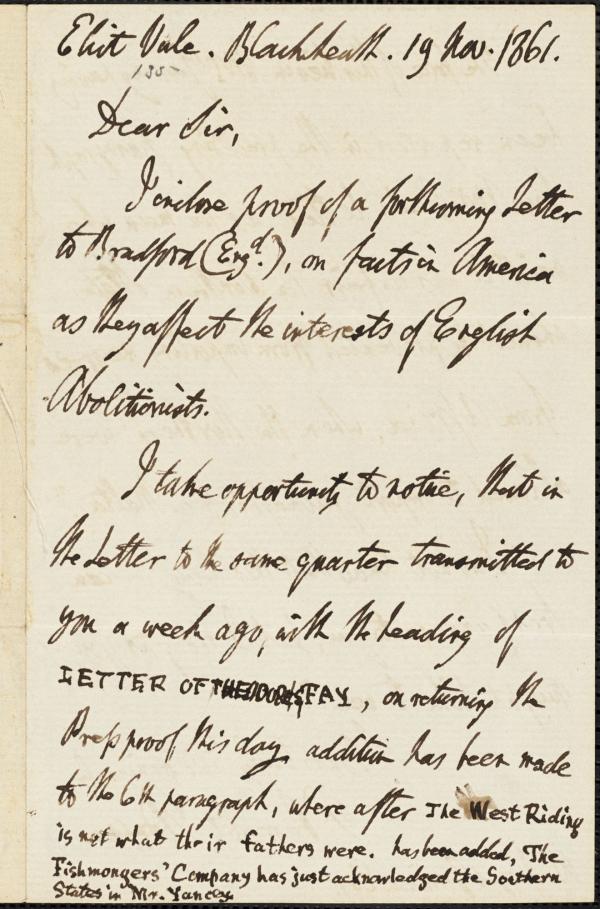 Eliot Vale. Blackheath. 19 Nov. 1861.
135
Dear Sir,
I inclose proof of a forthcoming Letter
to Bradford (Engd.), on facts in America
as they affect the interests of English
Abolitionists.
I take opportunity to notice, that in
the Letter to the same quarter transmitted to
you a week ago, with the heading of
LETTER OF THEODORE S. FAY, on returning the
Press proof this day addition has been made
to the 6th paragraph, where after The West Riding
is not what their fathers were. has been added, The
Fishmongers' Company has just acknowledged the Southern
States in Mr. Yancey.